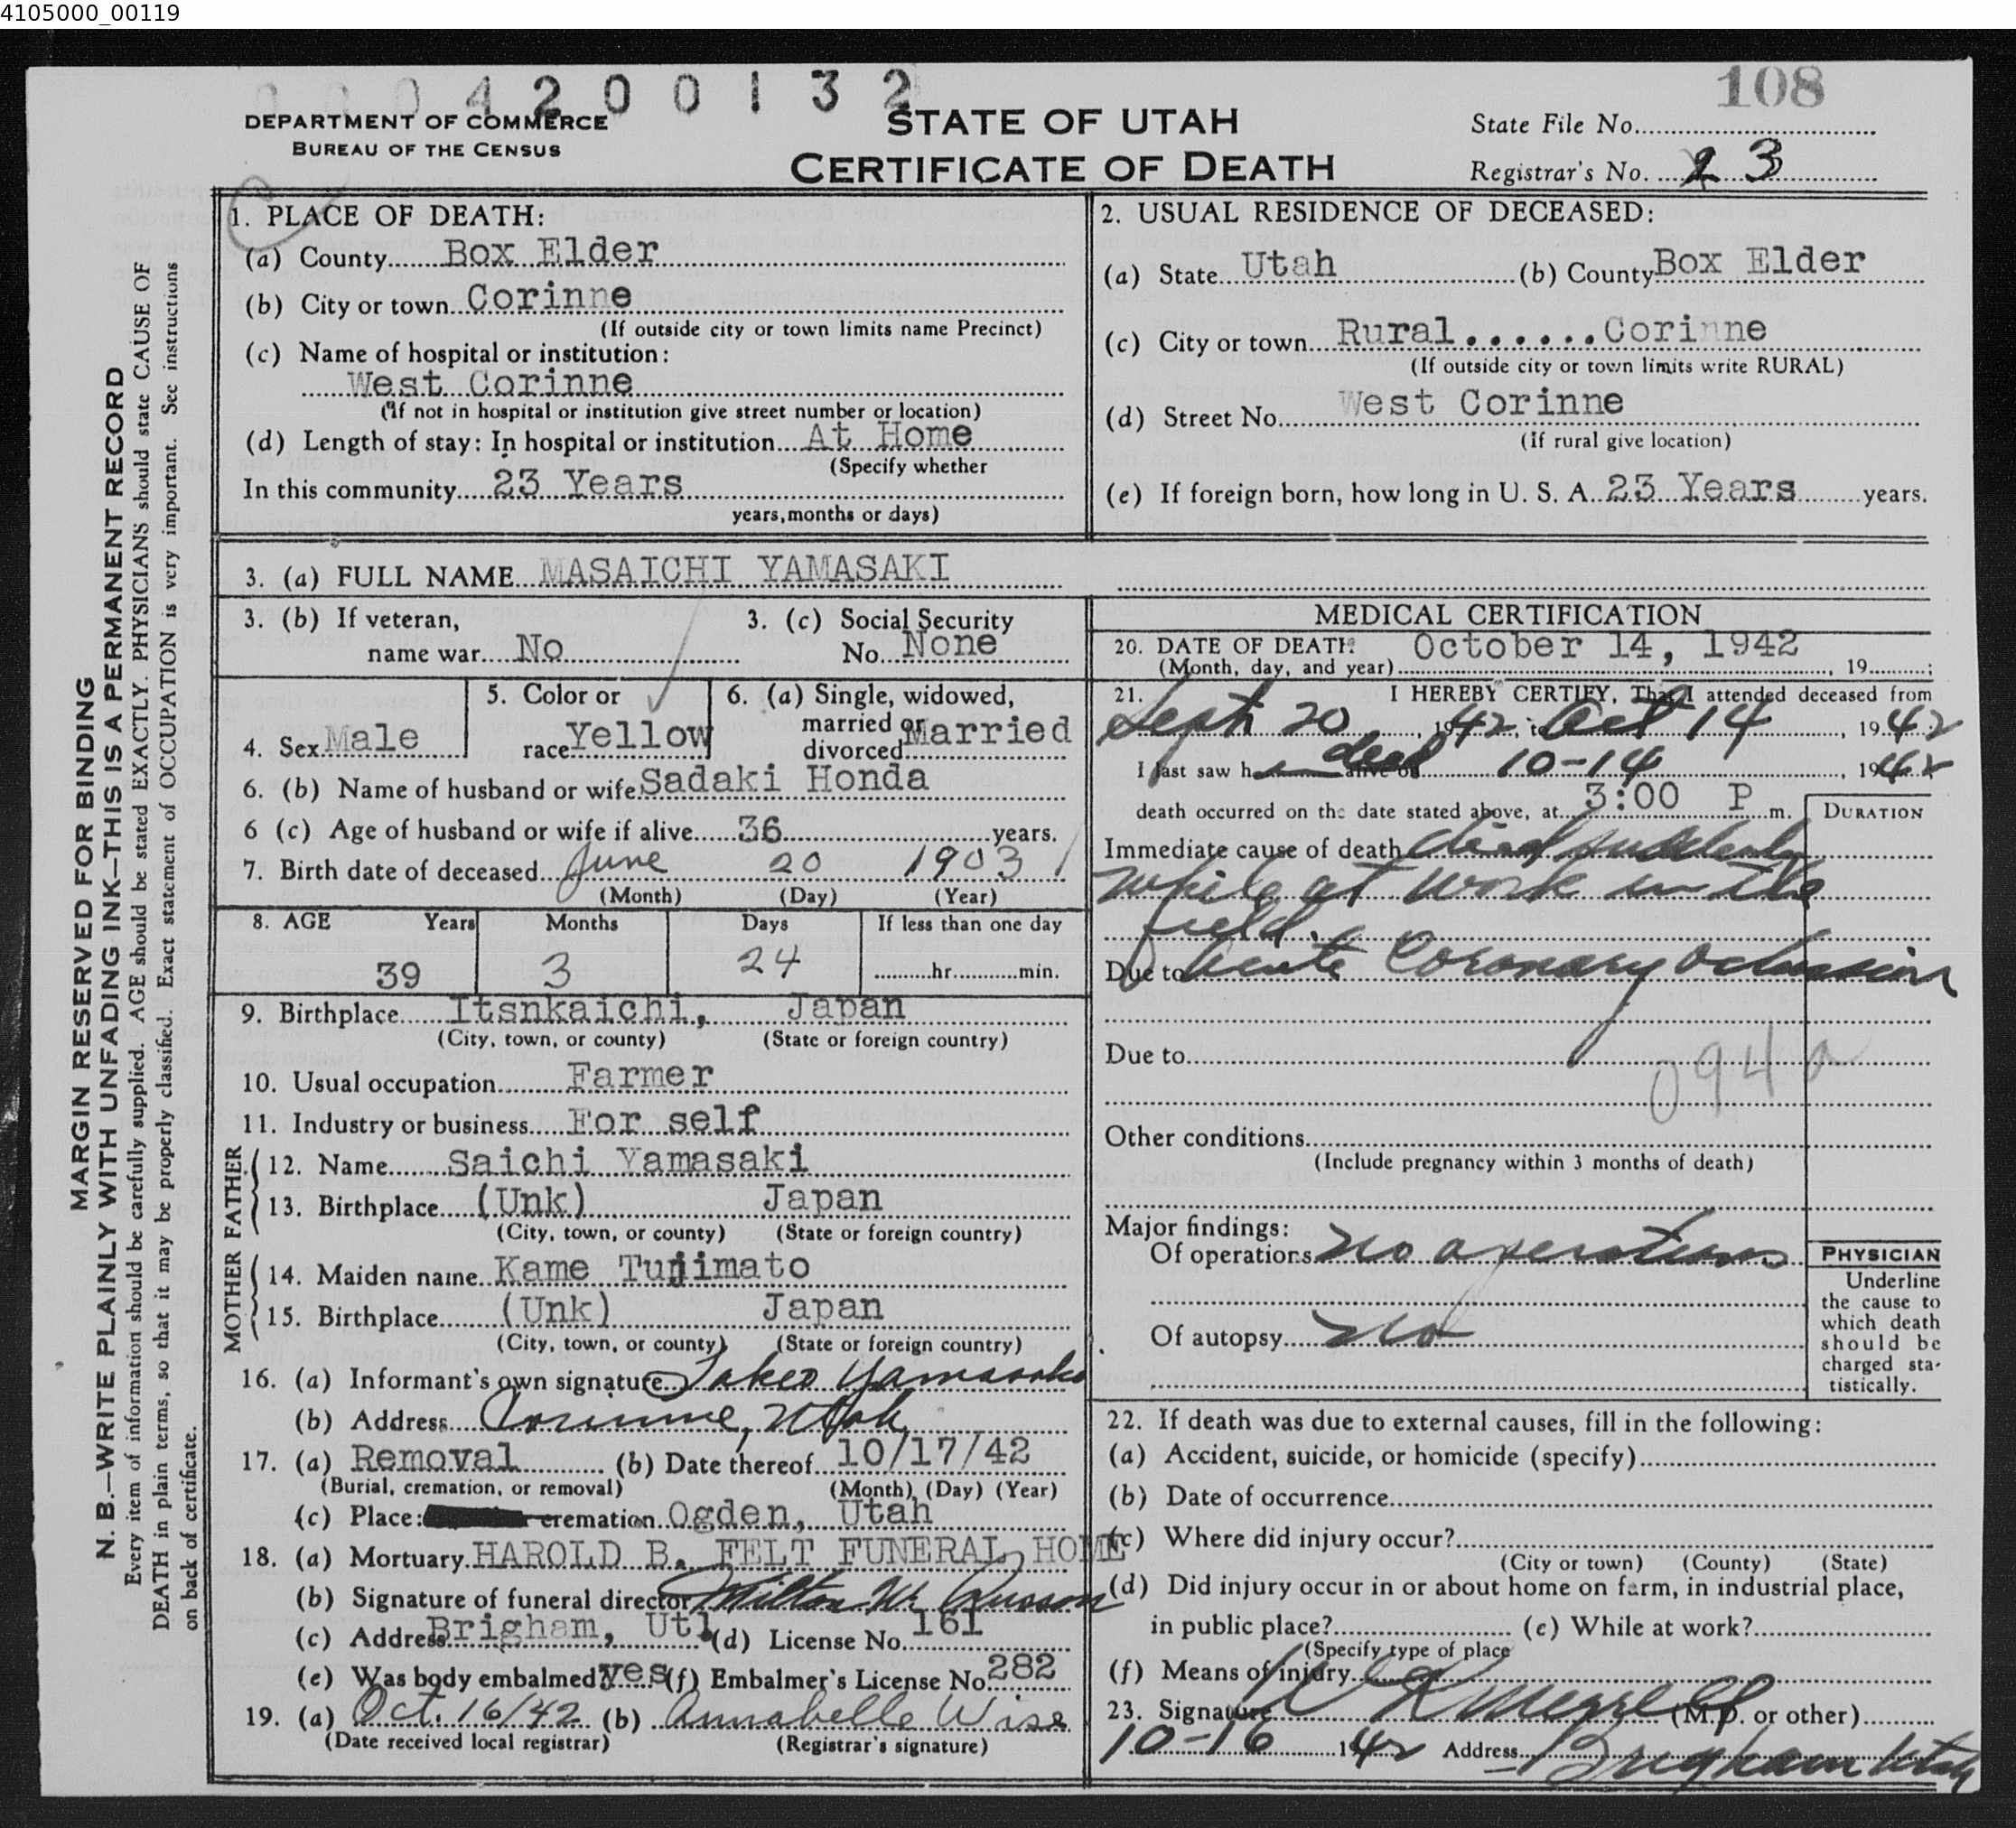 4105000_00119
0004200132
108
DEPARTMENT OF COMMERCE
BUREAU OF THE CENSUS
STATE OF UTAH
CERTIFICATE OF DEATH
State File No.
Registrar's No. 23
MARGIN RESERVED FOR BINDING
N. B.—WRITE PLAINLY WITH UNFADING INK—THIS IS A PERMANENT RECORD
Every item of information should be carefully supplied. AGE should be stated EXACTLY. PHYSICIANS should state CAUSE OF
DEATH in plain terms, so that it may be properly classified. Exact statement of OCCUPATION is very important. See instructions
on back of certificate.
1. PLACE OF DEATH:
(a) County Box Elder
(b) City or town Corinne
(If outside city or town limits name Precinct)
(c) Name of hospital or institution:
West Corinne
(If not in hospital or institution give street number or location)
(d) Length of stay: In hospital or institution At Home
(Specify whether
In this community 23 Years
years, months or days)
2. USUAL RESIDENCE OF DECEASED:
(a) State Utah (b) County Box Elder
(c) City or town Rural......Corinne
(If outside city or town limits write RURAL)
(d) Street No. West Corinne
(If rural give location)
(e) If foreign born, how long in U. S. A. 23 Years years.
3. (a) FULL NAME MASAICHI YAMASAKI
3. (b) If veteran,
name war No
3. (c) Social Security
No. None
4. Sex Male
5. Color or
race Yellow
6. (a) Single, widowed,
married or
divorced Married
6. (b) Name of husband or wife Sadaki Honda
6 (c) Age of husband or wife if alive 36 years.
7. Birth date of deceased June 20 1903
(Month) (Day) (Year)
8. AGE Years Months Days If less than one day
39 3 24 hr. min.
9. Birthplace Itsnkaichi, Japan
(City, town, or county) (State or foreign country)
10. Usual occupation Farmer
11. Industry or business For self
FATHER
12. Name Saichi Yamasaki
13. Birthplace (Unk) Japan
(City, town, or county) (State or foreign country)
MOTHER
14. Maiden name Kame Tujimato
15. Birthplace (Unk) Japan
(City, town, or county) (State or foreign country)
16. (a) Informant's own signature Takeo Yamasaki
(b) Address Corinne, Utah
17. (a) Removal (b) Date thereof 10/17/42
(Burial, cremation, or removal) (Month) (Day) (Year)
(c) Place: cremation Ogden, Utah
18. (a) Mortuary HAROLD B. FELT FUNERAL HOME
(b) Signature of funeral director Milton W.
(c) Address Brigham, Ut (d) License No. 161
(e) Was body embalmed? yes (f) Embalmer's License No. 282
19. (a) Oct. 16/42 (b) Annabelle Wise
(Date received local registrar) (Registrar's signature)
MEDICAL CERTIFICATION
20. DATE OF DEATH: October 14, 1942
(Month, day, and year) , 19 ;
21. I HEREBY CERTIFY, That I attended deceased from
Sept 20, 1942, to Oct 14, 1942
I last saw h dead alive on 10-14, 1942
death occurred on the date stated above, at 3:00 P m.
DURATION
Immediate cause of death died suddenly
while at work in the
field.
Due to Acute Coronary Oclussion
Due to
094a
Other conditions
(Include pregnancy within 3 months of death)
Major findings:
Of operations no operations
Of autopsy no
PHYSICIAN
Underline
the cause to
which death
should be
charged sta-
tistically.
22. If death was due to external causes, fill in the following:
(a) Accident, suicide, or homicide (specify)
(b) Date of occurrence
(c) Where did injury occur?
(City or town) (County) (State)
(d) Did injury occur in or about home on farm, in industrial place,
in public place? (e) While at work?
(Specify type of place
(f) Means of injury
23. Signature (M.D. or other)
10-16 1942 Address Brigham Utah